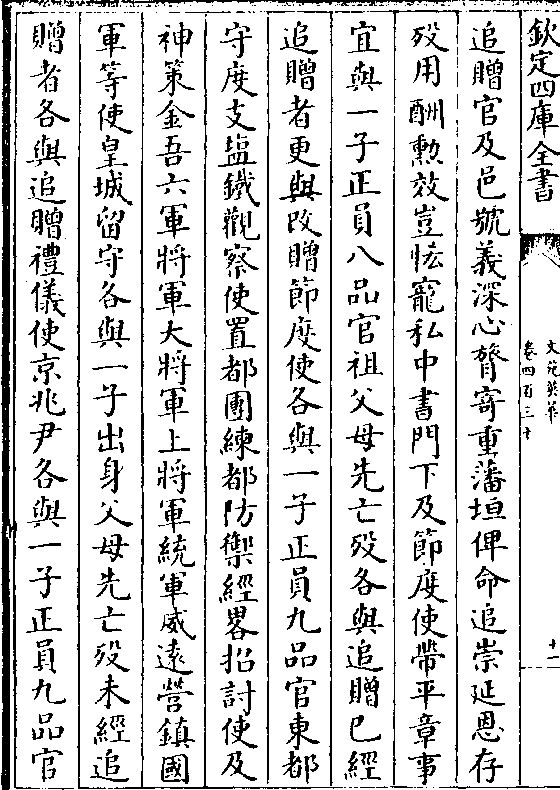 欽定四庫全書
文苑英華
卷四百三十
十一
追贈官及邑號義深心膂寄重藩垣俾命追崇延恩存
歿用酬勲效豈恡寵私中書門下及節度使帶平章事
宜與一子正員八品官祖父母先亡歿各與追贈已經
追贈者更與改贈節度使各與一子正員九品官東都
守度支塩鐵觀察使置都團練都防禦經畧招討使及
神策金吾六軍將軍大將軍上將軍統軍威遠營鎮國
軍等使皇城留守各與一子出身父母先亡歿未經追
贈者各與追贈禮儀使京兆尹各與一子正員九品官